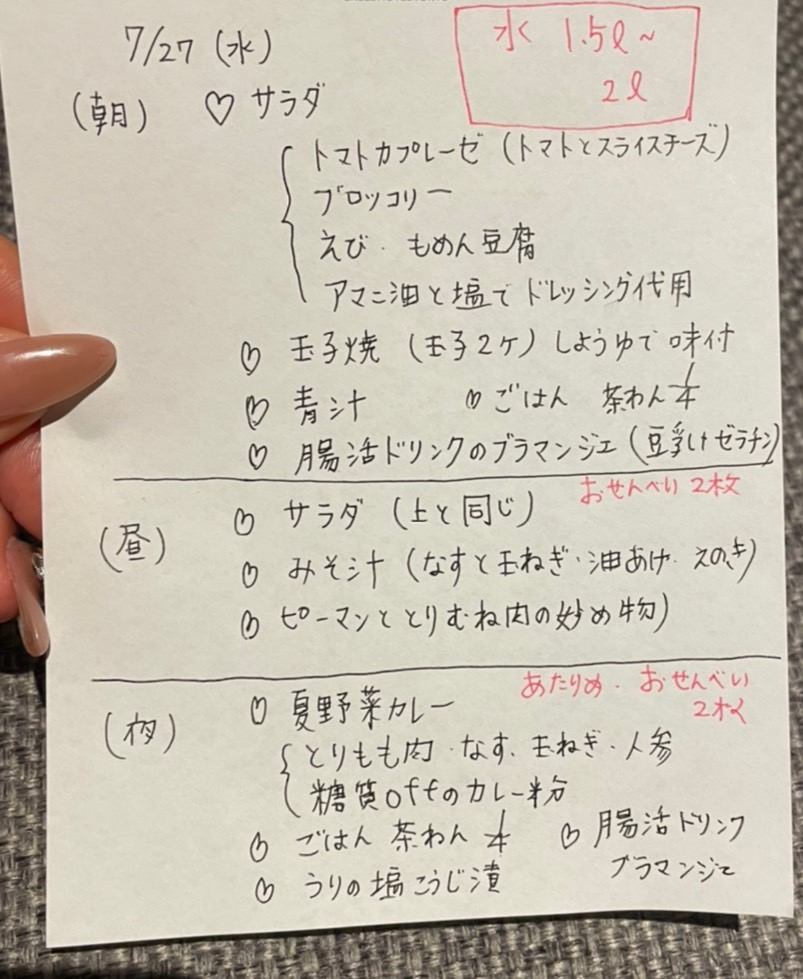 7/27 (水)
水 1.5ℓ~
2ℓ
(朝) ♡ サラダ
トマトカプレーゼ (トマトとスライスチーズ)
ブロッコリー
えび・もめん豆腐
アマニ油と塩でドレッシング代用
♡ 玉子焼 (玉子2ケ) しょうゆで味付
♡ 青汁 ♡ ごはん 茶わん 1/4
♡ 腸活ドリンクのブラマンジェ (豆乳けゼラチン)
おせんべい 2枚
(昼) ♡ サラダ (上と同じ)
♡ みそ汁 (なすと玉ねぎ・油あげ・えのき)
♡ ピーマンととりむね肉の炒め物)
あたりめ・おせんべい
2枚
(夜) ♡ 夏野菜カレー
とりもも肉・なす、玉ねぎ・人参
糖質offのカレー粉
♡ ごはん 茶わん 1/4 ♡ 腸活ドリンク
ブラマンジェ
♡ うりの塩こうじ漬